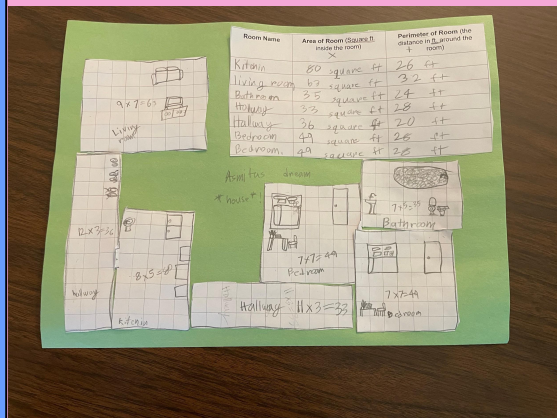 Room Name
Area of Room (Square ft inside the room)
Perimeter of Room (the distance in ft. around the room)
×
+
Kitchin 80 square ft 26 ft
living room 63 square ft 32 ft
Bathroom 35 square ft 24 ft
Hallway 33 square ft 28 ft
Hallway 36 square ft 20 ft
Bedroom 49 square ft 28 ft
Bedroom 49 square ft 28 ft
9×7=63
Living room
dream
house
12×3=36
hallway
Kitchin
7×7=49
Bedroom
7×5=35
Bathroom
7×7=49
Bedroom
Hallway 11×3=33